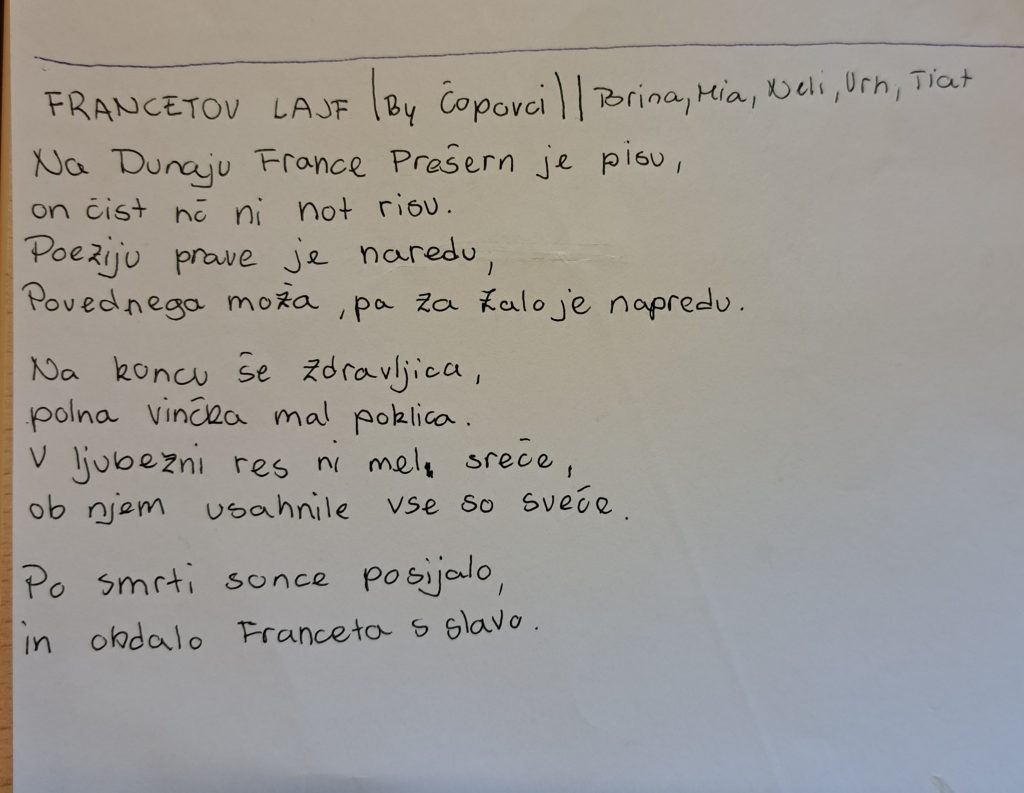 FRANCETOV LAJF |By Čopovci|| Brina, Mia, Neli, Urh, Tiat
Na Dunaju France Prešern je pisu,
on čist nč ni not risu.
Poeziju prave je naredu,
Povednega moža, pa za žalo je napredu.
Na koncu še zdravljica,
polna vinčka mal poklica.
V ljubezni res ni mel sreče,
ob njem usahnile vse so sveče.
Po smrti sonce posijalo,
in obdalo Franceta s slavo.